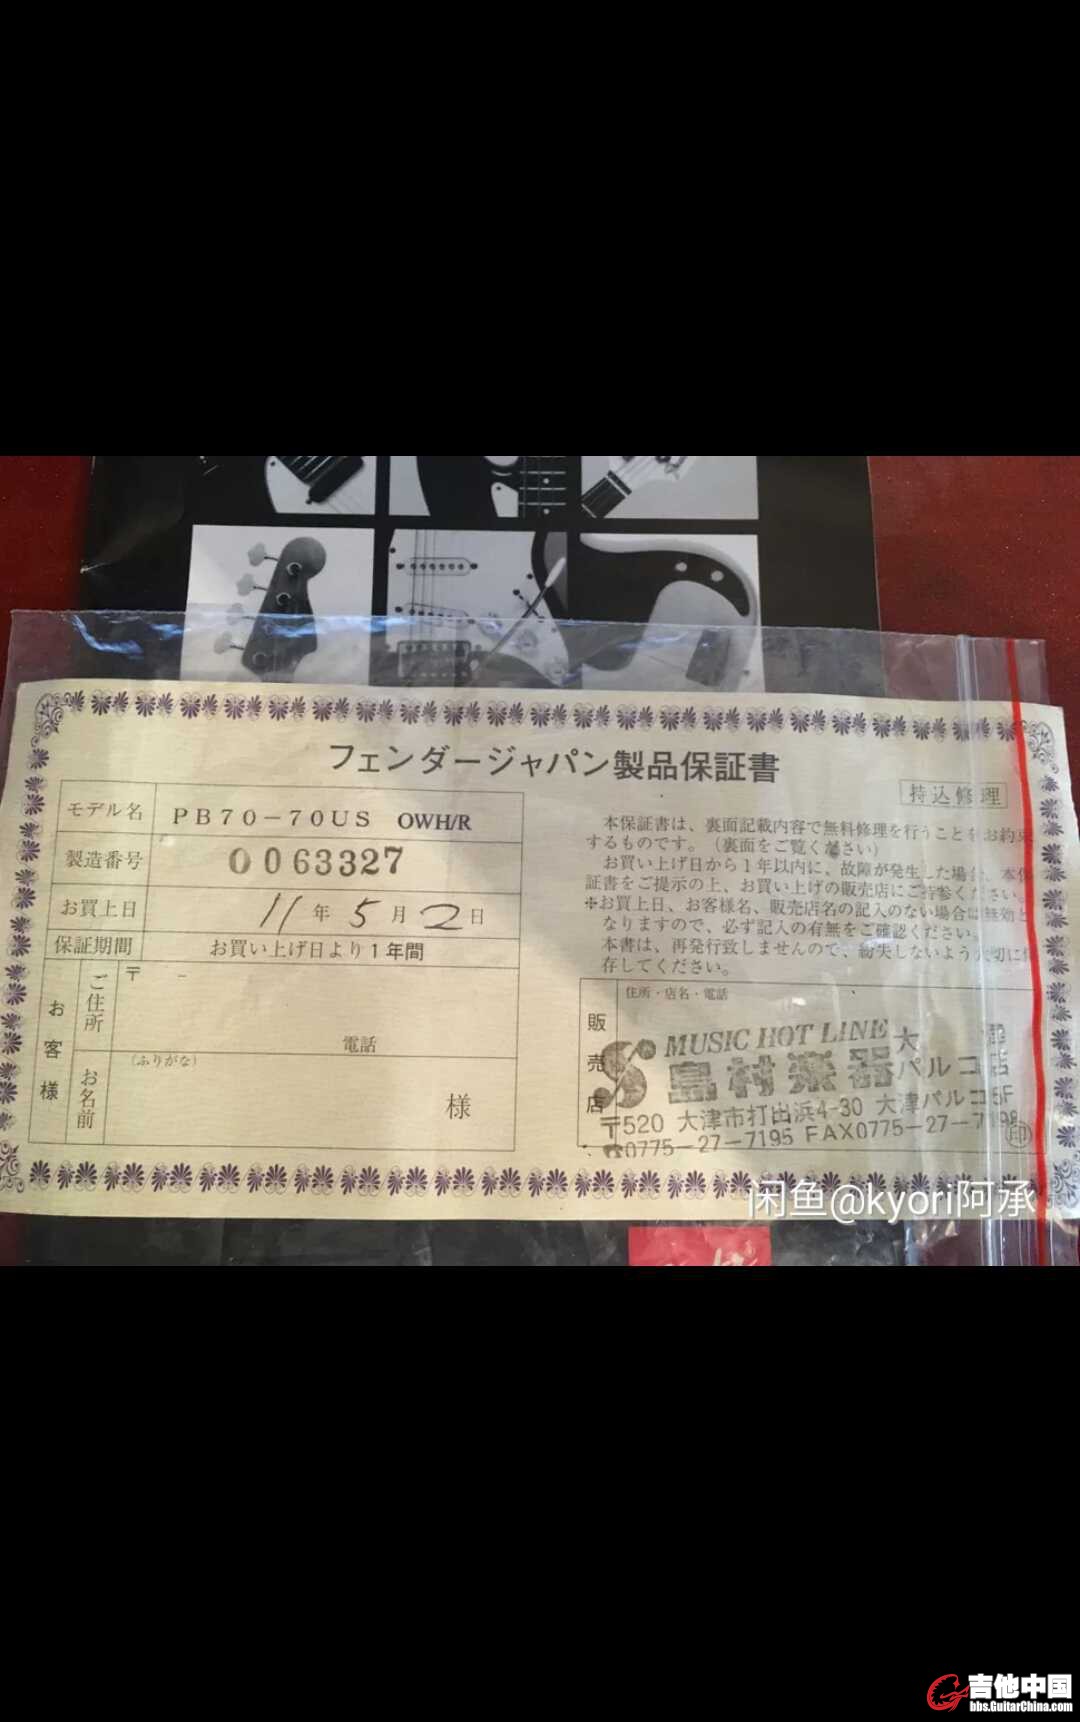 フェンダージャパン製品保証書
モデル名 PB70-70US OWH/R
製造番号 0063327
お買上日 11年5月2日
保証期間 お買い上げ日より1年間
お客様
ご住所 〒 -
電話
(ふりがな)
お名前 様
持込修理
本保証書は、裏面記載内容で無料修理を行うことをお約束
するものです。(裏面をご覧ください)
お買い上げ日から1年以内に、故障が発生した場合、本保
証書をご提示の上、お買い上げの販売店にご持参ください。
※お買上日、お客様名、販売店名の記入のない場合は無効と
なりますので、必ず記入の有無をご確認ください。
本書は、再発行致しませんので、紛失しないよう大切に保
存してください。
販売店
住所・店名・電話
MUSIC HOT LINE
島村楽器 大
パルコ店
〒520 大津市打出浜4-30 大津パルコ5F
☎0775-27-7195 FAX0775-27-7198
印
闲鱼@kyori阿承
吉他中国
bbs.GuitarChina.com